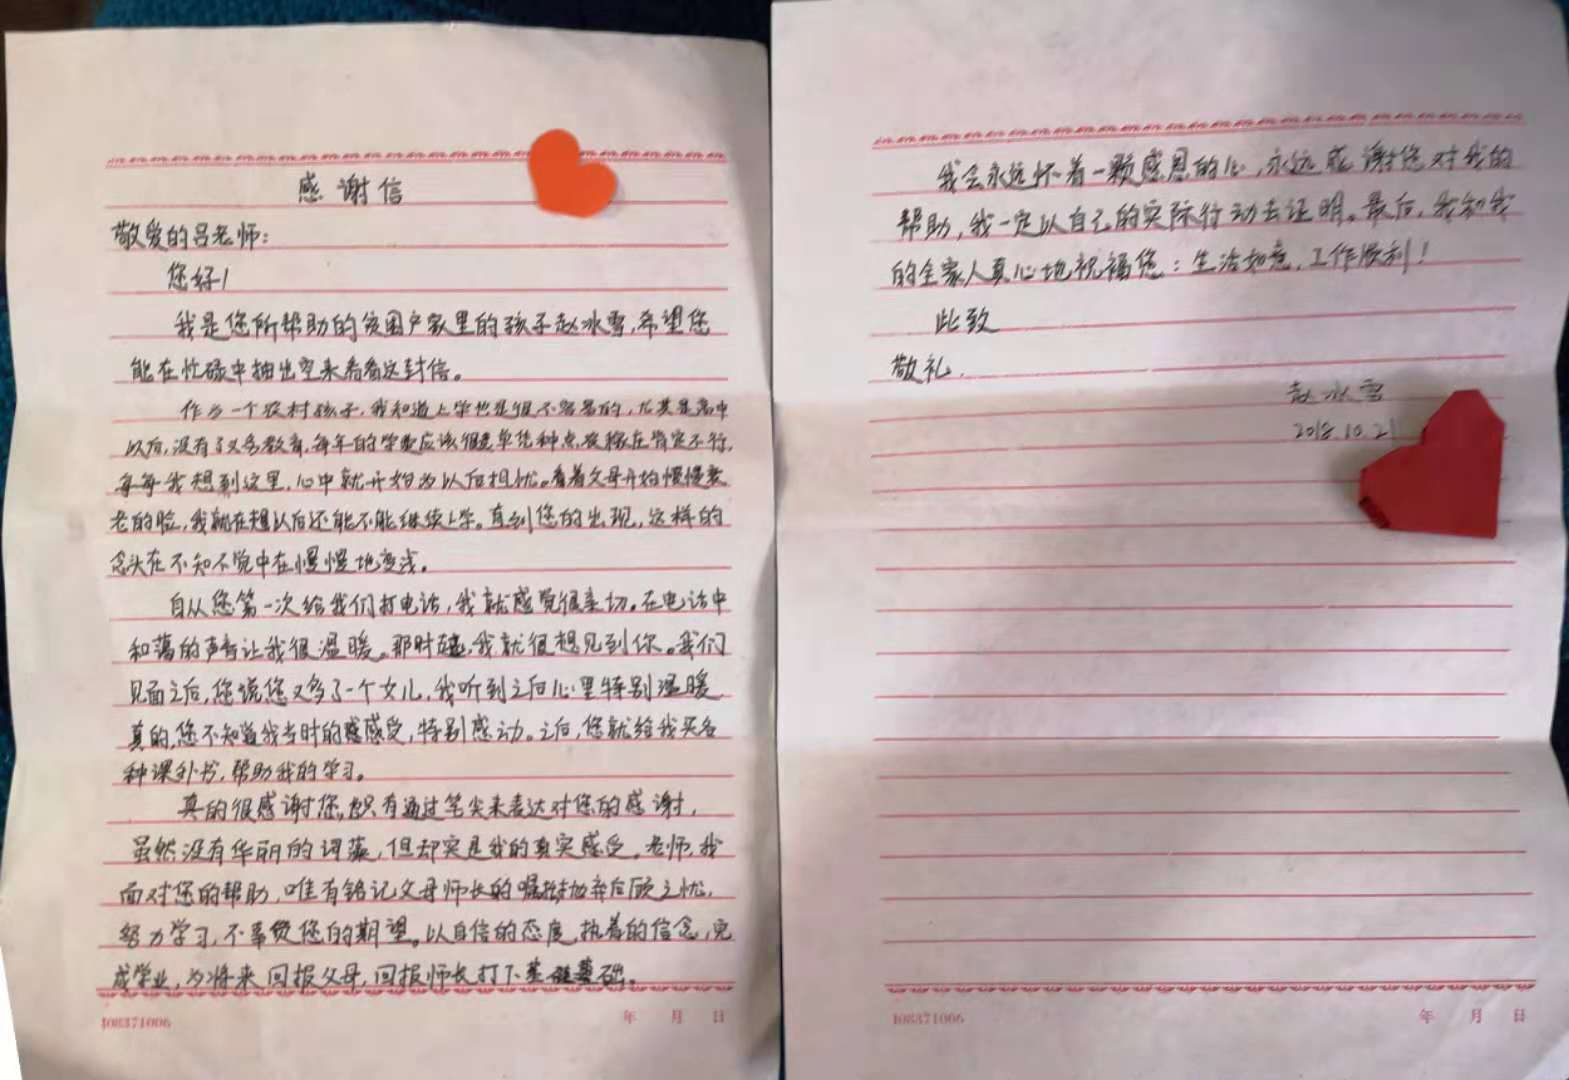 感谢信
敬爱的吕老师：
您好！
我是您所帮助的贫困户家里的孩子赵冰雪，希望您
能在忙碌中抽出空来看看这封信。
作为一个农村孩子，我知道上学也是很不容易的，尤其是高中
以后，没有了义务教育，每年的学费应该很贵单凭种点庄稼在肯定不行，
每每我想到这里，心中就开始为以后担忧。看着父母开始慢慢变
老的脸，我就在想以后还能不能继续上学。直到您的出现，这样的
念头在不知不觉中在慢慢地变浅。
自从您第一次给我们打电话，我就感觉很亲切。在电话中
和蔼的声音让我很温暖。那时，我就很想见到你。我们
见面之后，您说您又多了一个女儿，我听到之后心里特别温暖
真的，您不知道我当时的感受，特别感动。之后，您就给我买各
种课外书，帮助我的学习。
真的很感谢您，只有通过笔尖来表达对您的感谢，
虽然没有华丽的词藻，但却实是我的真实感受。老师，我
面对您的帮助，唯有铭记父母师长的嘱托抛弃后顾之忧，
努力学习，不辜负您的期望。以自信的态度，执着的信念，完
成学业，为将来回报父母，回报师长打下基础。
108371006
年 月 日
我会永远怀着一颗感恩的心，永远感谢您对我的
帮助，我一定以自己的实际行动去证明。最后，我和我
的全家人真心地祝福您：生活如意，工作顺利！
此致
敬礼．
赵冰雪
2018.10.21
108371006
年 月 日